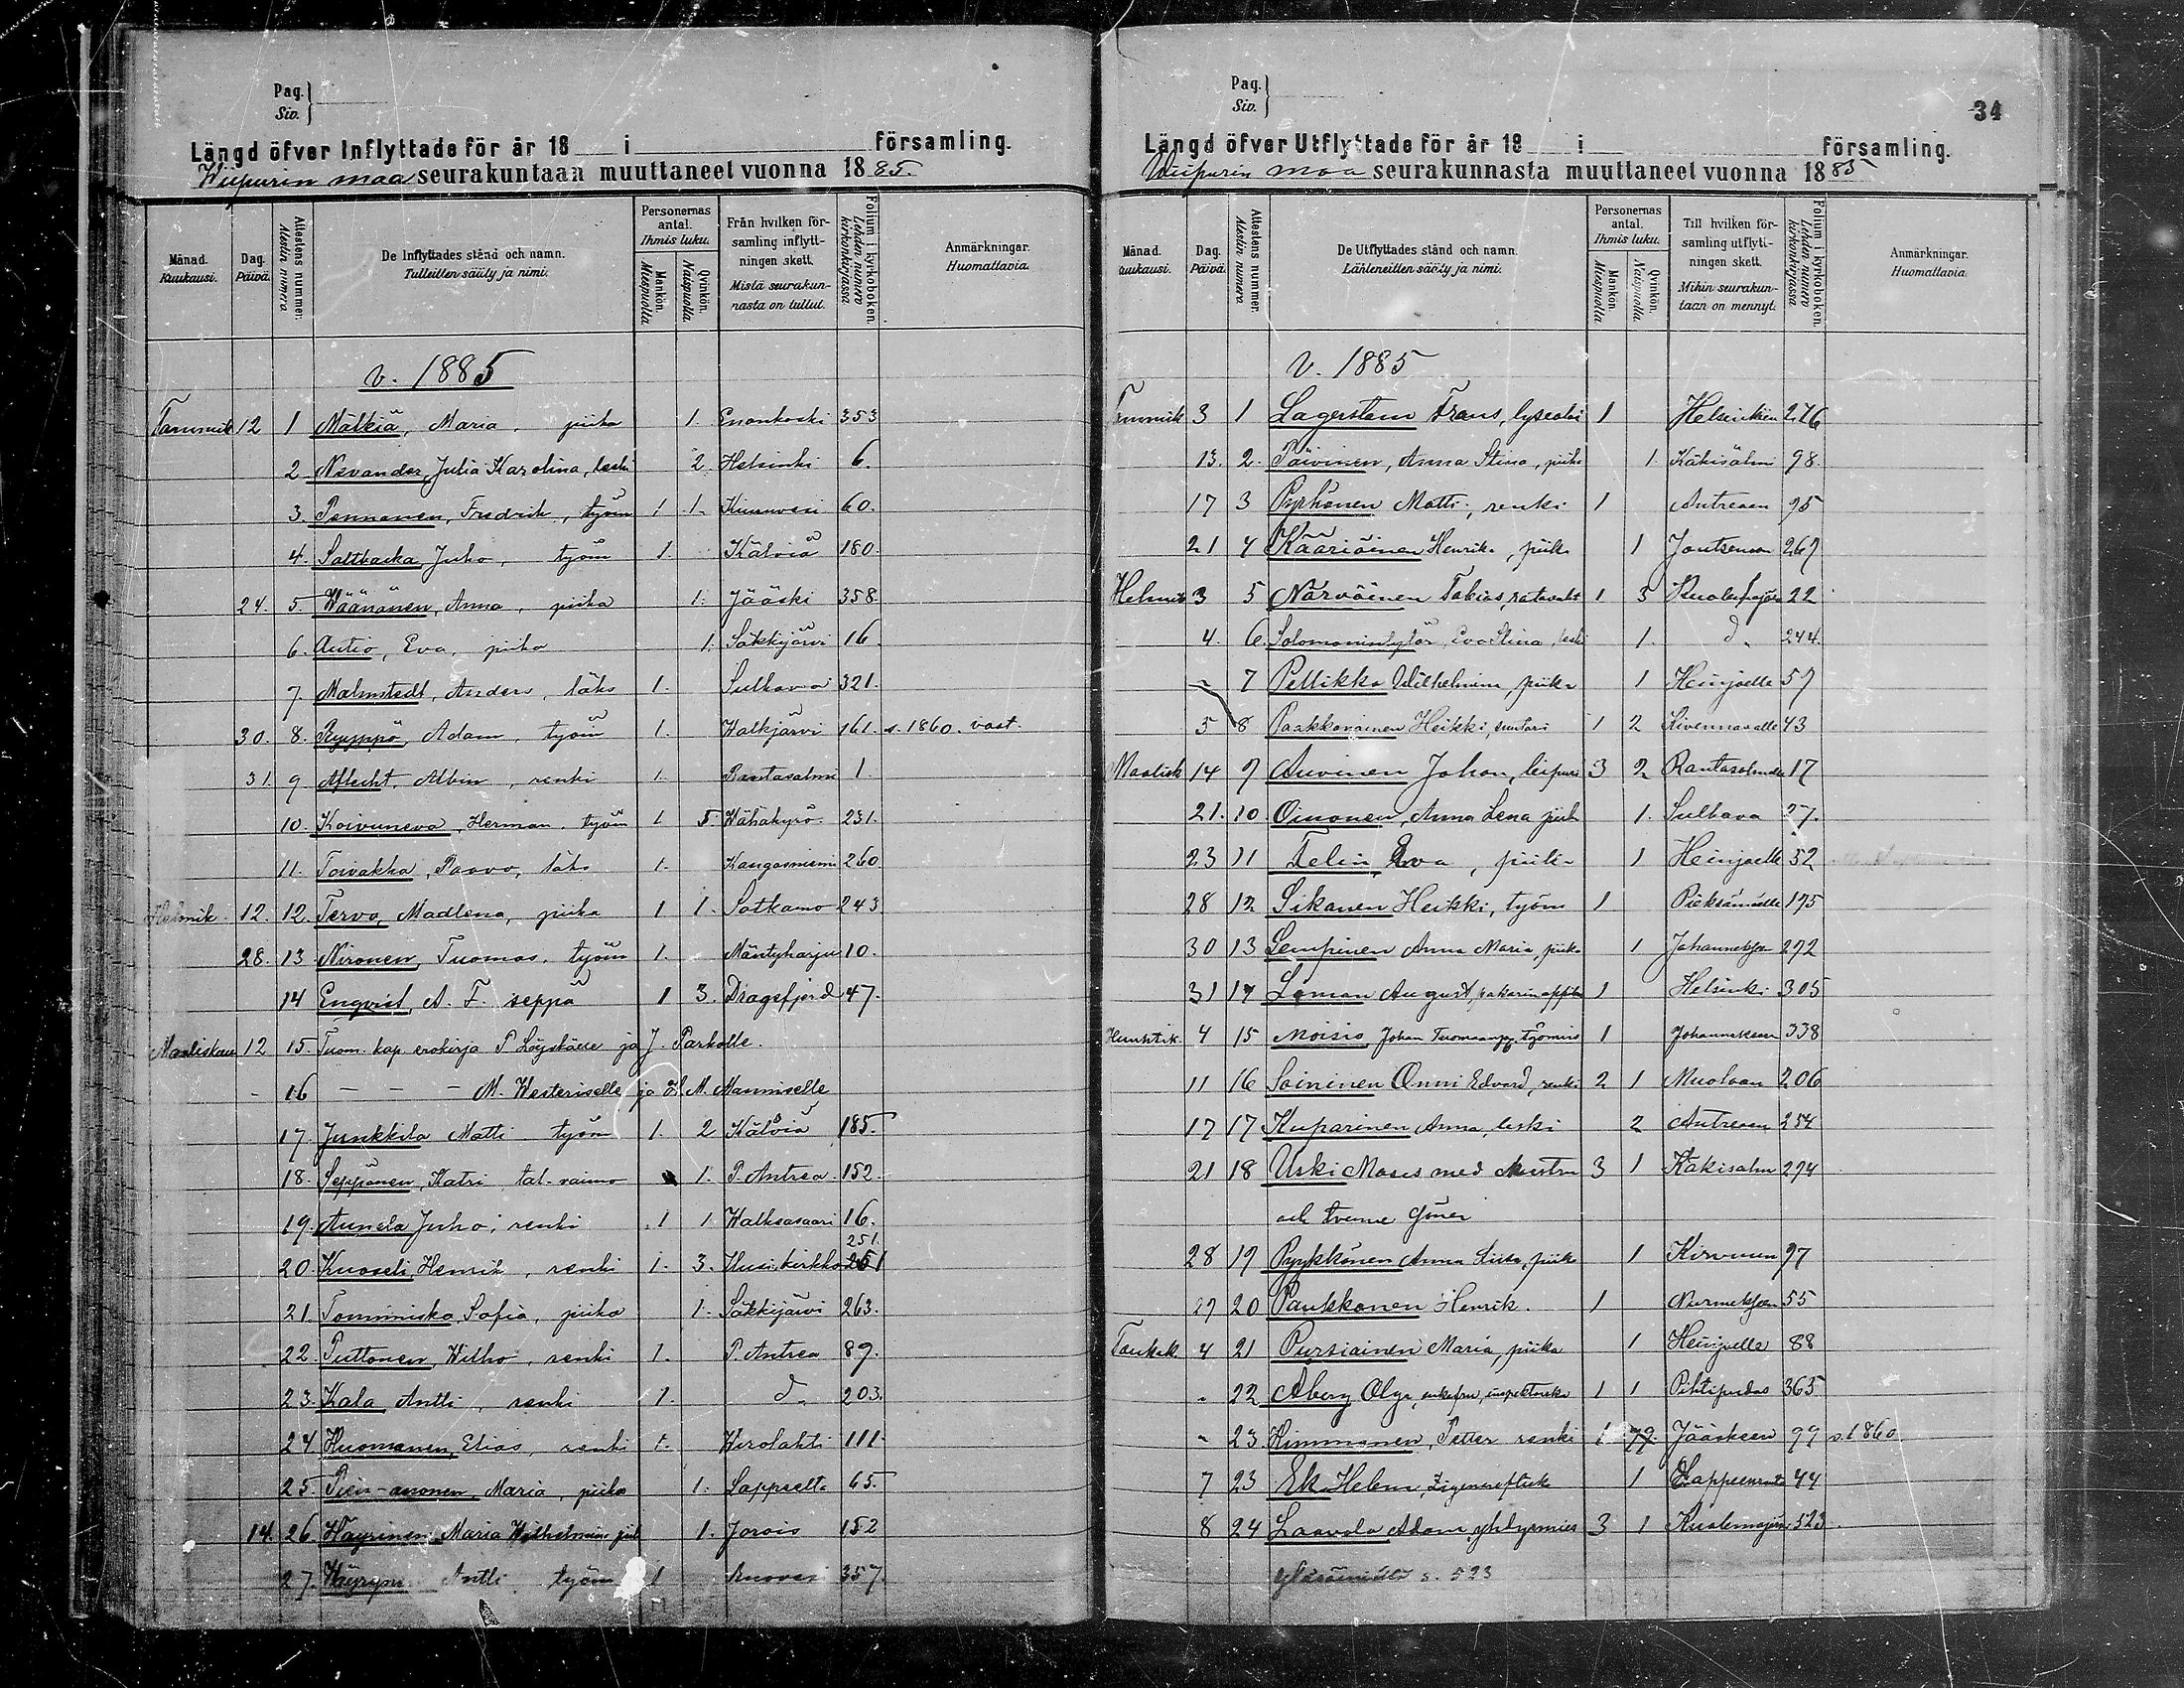 Pag.
Siv.
Längd öfver Inflyttade för år 18 i församling.
Wiipurin maa seurakuntaan muuttaneet vuonna 1885.
Månad. Kuukausi.
Dag. Päivä.
Attestens nummer. Alestin numero
De Inflyttades stånd och namn.
Tulleitten sääty ja nimi.
Personernas antal. Ihmis luku.
Mankön. Miespuolia
Qvinkön. Naispuolia
Från hvilken för-
samling inflytt-
ningen skett.
Mistä seurakun-
nasta on tullut.
Folium i kyrkoboken. Lehden numero kirkonkirjassa
Anmärkningar.
Huomattavia.
v. 1885
Tammik 12 1 Mälkiä, Maria, piika 1. Enonkoski 353
2 Nevander, Julia Karolina, leski 2 Helsinki 6.
3. Pennanen, Fredrik, työm 1 1. Kiuruvesi 60.
4. Saltbacka Juho, työm 1. Kälviä 180.
24. 5 Wäänänen, Anna, piika 1. Jääski 358
6. Autio, Eva, piika 1. Säkkijärvi 16
7 Malmstedt, Anders, läks 1. Sulkava 321.
30. 8. Ryyppö, Adam, työm 1. Walkjärvi 161. s. 1860. vast.
31. 9 Albin, renki 1. Rantasalmi 1.
10. Koivuneva, Herman, työm 1 5. Wähäkyrö 231.
11. Toivakka, Paavo, läks 1. Kangasniemi 260
Helmik 12. 12. Tervo, Madlena, piika 1 1. Sotkamo 243
28. 13 Nironen, Tuomas, työm 1. Mäntyharju 10.
14 Enqvist, A. F. seppä 1 3. Dragsfjerd 47.
Maaliskuu 12 15. Tuom. kap erokirja P. ja J. Parkolle.
16 — — — M. Westeriselle ja M. Manniselle
17. Junkkila Matti työm 1. 2 Kälviä 185.
18. Seppänen, Katri, tal-vaimo 1. P. Antrea. 152.
19. Aunela Juho, renki 1 1 Walkeasaari 16.
251.
20. Kuoseli, Henrik, renki 1. 3. Uusikirkko 251
21. Tommiska, Sofia, piika 1. Säkkijärvi 263.
22. Puttonen, Wilho, renki 1. P. Antrea 89.
23. Kala Antti, renki 1. d. 203.
24 Huomanen, Elias, renki 1. Wirolahti 111.
25. Maria, piika 1. Lappeelta 65.
14. 26. Häyrinen, Maria Wilhelmina piik 1. Jorois 152
27. Antti työm 1 357.
Pag.
Siv.
34
Längd öfver Utflyttade för år 18 i församling.
Wiipurin maa seurakunnasta muuttaneet vuonna 1885
Månad. Kuukausi.
Dag. Päivä.
Attestens nummer. Alestin numero
De Utflyttades stånd och namn.
Lähteneitten sääty ja nimi.
Personernas antal. Ihmis luku.
Mankön. Miespuolia
Qvinkön. Naispuolia
Till hvilken för-
samling utflytt-
ningen skett.
Mihin seurakun-
taan on mennyt.
Folium i kyrkoboken. Lehden numero kirkonkirjassa
Anmärkningar.
Huomattavia.
v. 1885
Tammik 3 1 Lagerstam Frans, 1 Helsinkiin 276
13. 2. Päivinen, Anna Stina, piika 1. Käkisalmi 98.
17 3 Pyyhönen Matti, renki 1 Antreaan 95
21 4 Kääriäinen Henrika, piika 1 Joutsenoon 267
Helmik 3 5 Närväinen Tobias, ratavaht 1 3 22
4. 6. Solomonintytär, Eva Stina, leski 1. d. 244.
" 7 Pellikka Wilhelmina, piika 1 Heinjoelle 57
5 8 Paakkonainen Heikki, suutari 1 2 Kivennavalle 43
Maalisk 14 9 Auvinen Johan, leipuri 3 2 Rantasalmelle 17
21. 10 Oinonen, Anna Lena piika 1. Sulkava 27.
23 11 Telin Eva, piika 1 Heinjoelle 52
28 12 Sikanen Heikki, työm 1 Pieksämäelle 195
30 13 Lempinen Anna Maria, piika 1 Johanneksen 292
31 14 Loman August, 1 Helsinki 305
Huhtik 4 15 Moisio, Johan Tuomaanp. työmies 1 Johannekseen 338
11 16 Soininen Onni Edvard, renki 2 1 Muolaan 206
17 17 Kuparinen Anna, leski 2 Antreaan 254
21 18 Uski Moses med hustru 3 1 Käkisalmi 294
och tvenne söner
28 19 Pyykkönen Anna Liisa, piika 1 Kirvuun 97
29 20 Paukkonen Henrik. 1 Nurmeksen 55
Toukok 4 21 Pursiainen Maria, piika 1 Heinjoelle 88
" 22 Åberg Olga, enkefru, 1 1 Pihtipudas 365
" 23 Himmanen, Petter renki 1 Jääskeen 99 s. 1860
7 23 Ek Helena, 1 Lappeenranta 44
8 24 Laavola Adam, 3 1 Kuolemajärvi 523.
s. 523